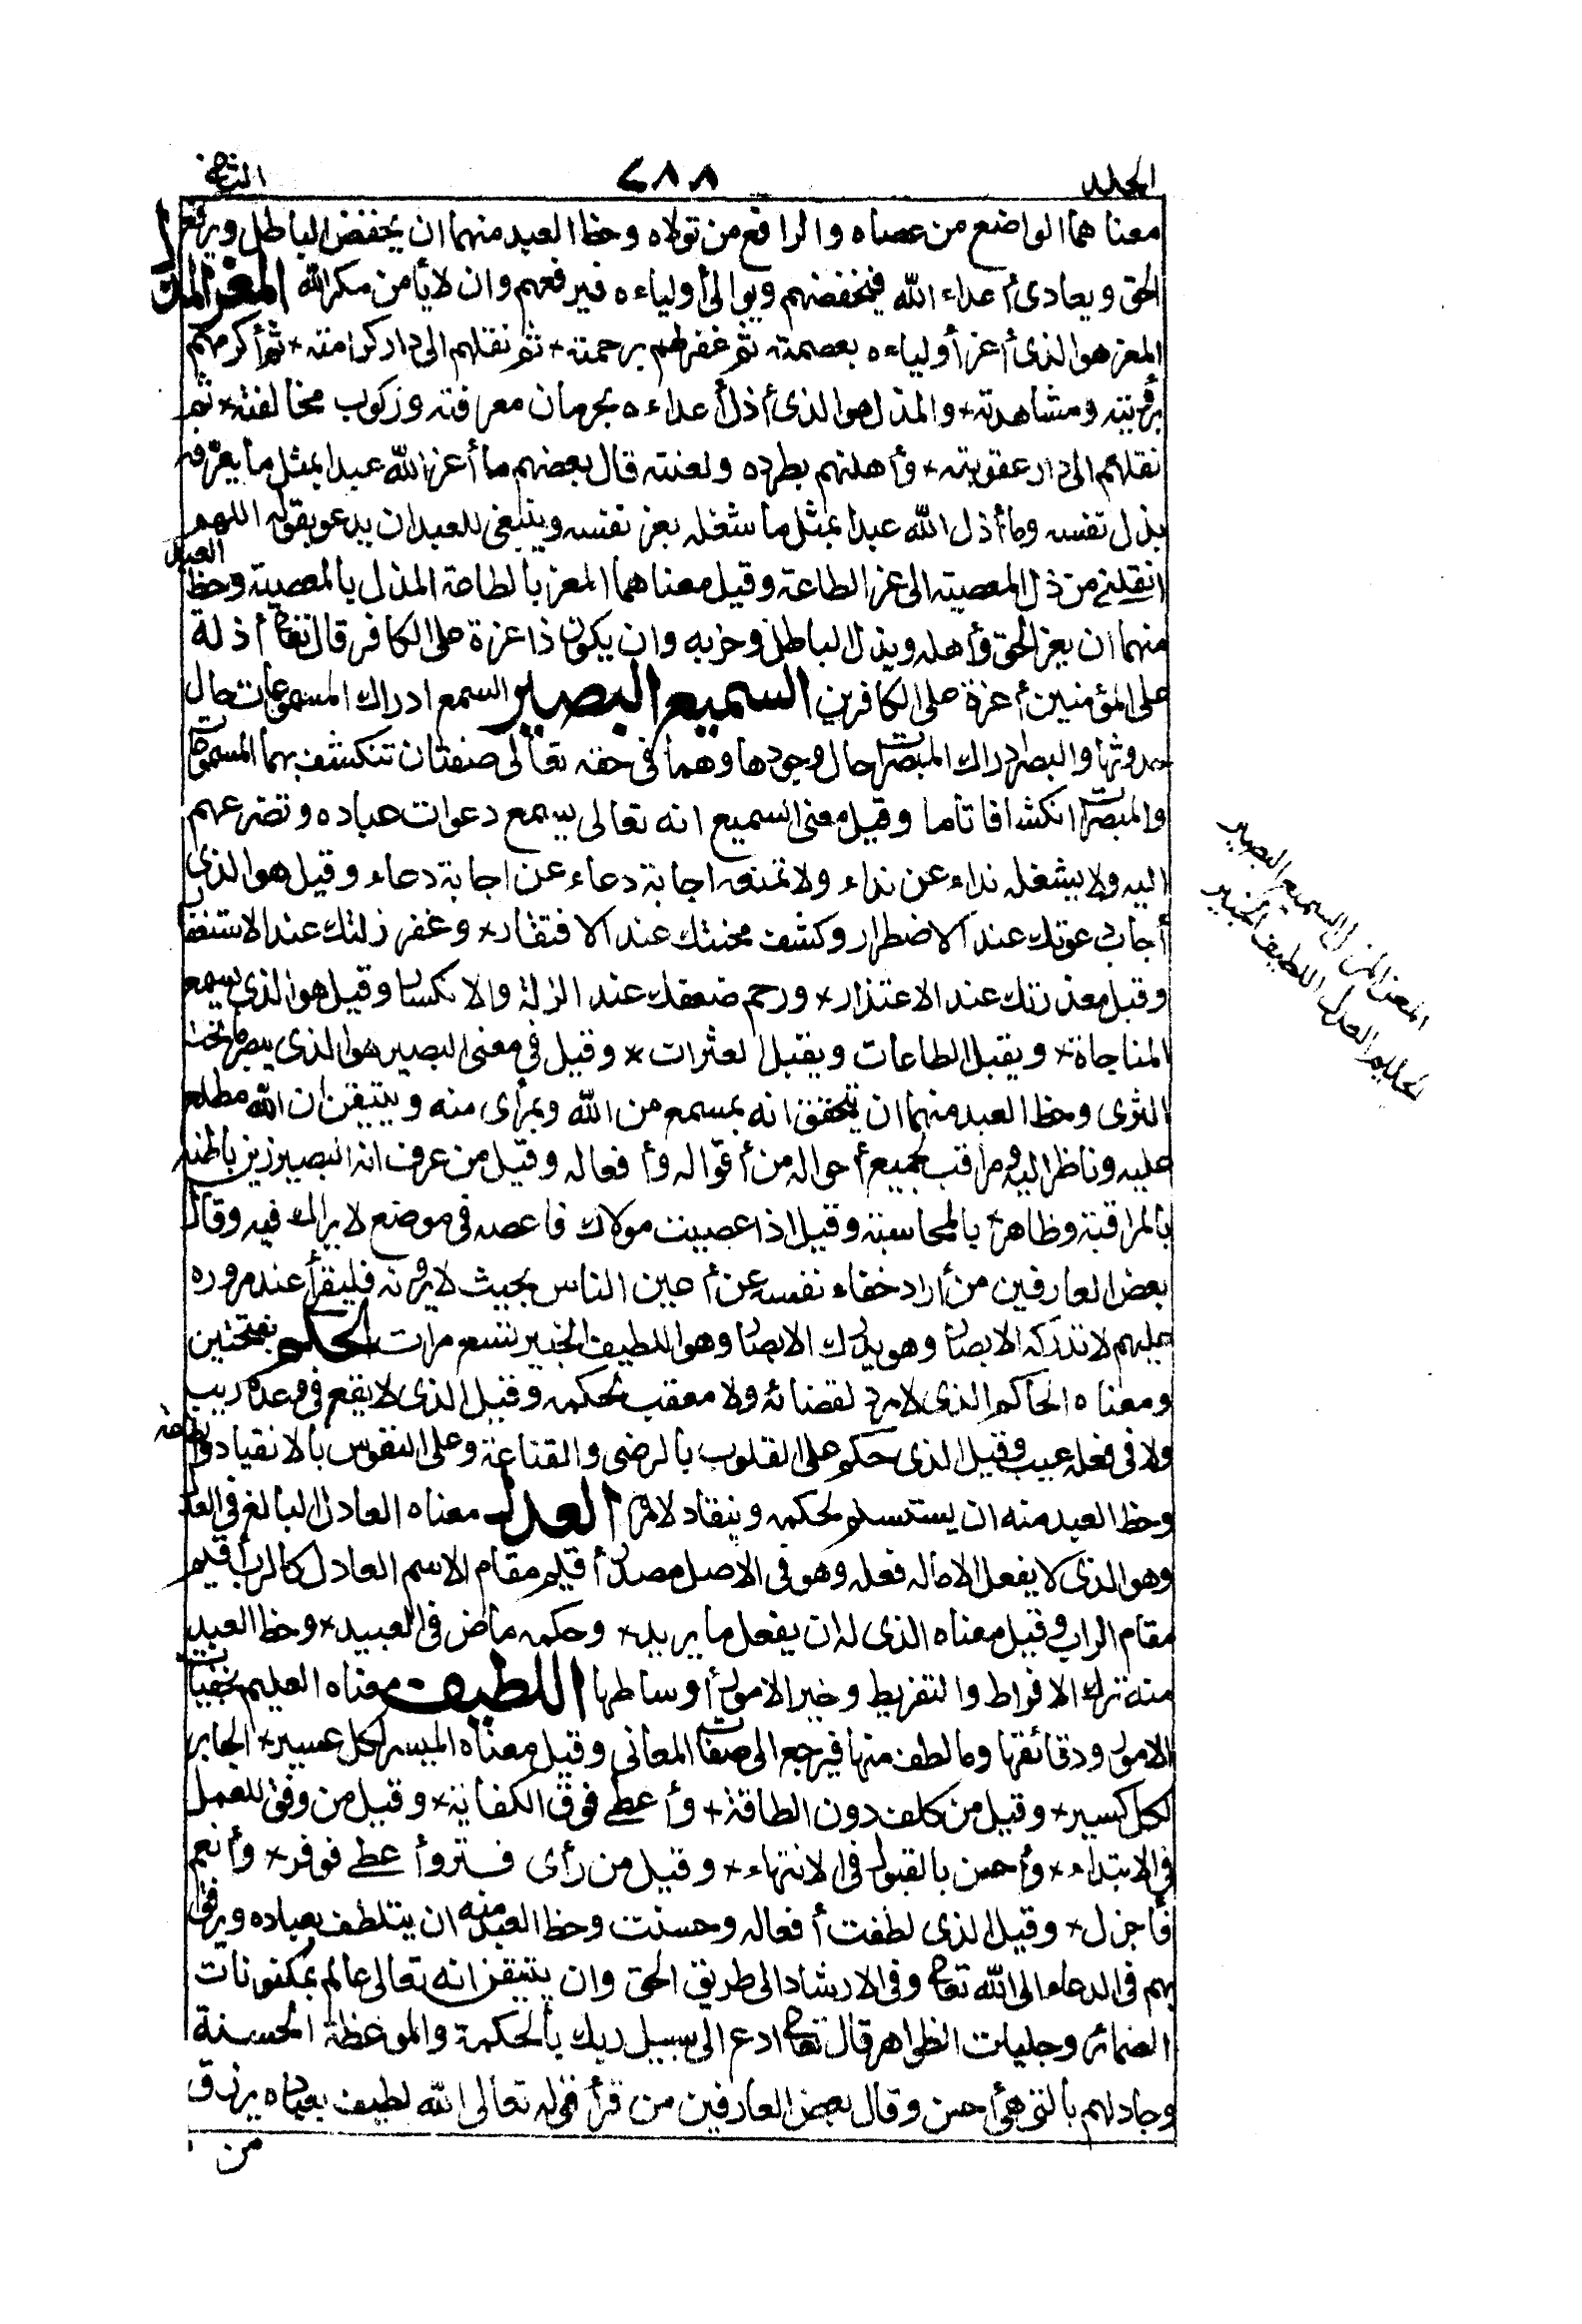 المجلد ٢٨٨ الثاني
معناهما الواضع من عصاه والرافع من تولاه وحظ العبد منهما ان يخفض الباطل ويرفع
الحق ويعادى أعداء الله فيخفضهم ويوالى أولياءه فيرفعهم وان لا يأمن مكر الله المعز المذل
المعز هو الذى أعز أولياءه بعصمته ثم غفر لهم برحمته + ثم نقلهم الى دار كرامته + ثم أكرمهم
برؤيته ومشاهدته + والمذل هو الذى أذل أعداءه بحرمان معرفته وركوب مخالفته + ثم
نقلهم الى دار عقوبته + وأهانهم بطرده ولعنته قال بعضهم ما أعز الله عبدا بمثل ما يعرفه
بذل نفسه وما أذل الله عبدا بمثل ما شغله بعز نفسه وينبغى للعبد ان يدعو بقوله اللهم
انقلنى من ذل المعصية الى عز الطاعة وقيل معناهما المعز بالطاعة المذل بالمعصية وحظ العبد
منهما ان يعز الحق وأهله ويذل الباطل وحزبه وان يكون ذا عزة على الكافر قال تعالى أذلة
على المؤمنين أعزة على الكافرين السميع البصير السمع ادراك المسموعات حال
حدوثها والبصر ادراك المبصرات حال وجودها وهما فى حقه تعالى صفتان تنكشف بهما المسموعات
والمبصرات انكشافا تاما وقيل معنى السميع انه تعالى يسمع دعوات عباده وتضرعهم
اليه ولا يشغله نداء عن نداء ولا تمنعه اجابة دعاء عن اجابة دعاء وقيل هو الذى
أجاب دعوتك عند الاضطرار وكشف محنتك عند الافتقار + وغفر زلتك عند الاستغفار
وقبل معذرتك عند الاعتذار + ورحم ضعفك عند الزلة والانكسار وقيل هو الذى يسمع
المناجاة + ويقبل الطاعات ويقيل العثرات + وقيل فى معنى البصير هو الذى يبصر ما تحت
الثرى وحظ العبد منهما ان يتحقق انه بمسمع من الله وبمرأى منه ويتيقن ان الله مطلع
عليه وناظر اليه ومراقب لجميع أحواله من أقواله وأفعاله وقيل من عرف انه البصير زين باطنه
بالمراقبة وظاهره بالمحاسبة وقيل اذا عصيت مولاك فاعصه فى موضع لا يراك فيه وقال
بعض العارفين من أراد خفاء نفسه عن أعين الناس بحيث لا يرونه فليقرأ عند مروره
عليهم لا تدركه الابصار وهو يدرك الابصار وهو اللطيف الخبير تسع مرات الحكم بفتحتين
ومعناه الحاكم الذى لا مرد لقضائه ولا معقب لحكمه وقيل الذى لا يقع فى وعده ريب
ولا فى فعله عيب وقيل الذى حكم على القلوب بالرضى والقناعة وعلى النفوس بالانقياد والطاعة
وحظ العبد منه ان يستسلم لحكمه وينقاد لأمره العدل معناه العادل البالغ فى العدل
وهو الذى لا يفعل الا ماله فعله وهو فى الاصل مصدر أقيم مقام الاسم العادل كالرب أقيم
مقام الراب وقيل معناه الذى له ان يفعل ما يريد + وحكمه ماض فى العبيد + وحظ العبد
منه ترك الافراط والتفريط وخير الامور أوساطها اللطيف معناه العليم بخفيات
الامور ودقائقها وما لطف منها فيرجع الى صفات المعانى وقيل معناه الميسر لكل عسير + الجابر
لكل كسير + وقيل من كلف دون الطاقة + وأعطى فوق الكفاية + وقيل من وفق للعمل
فى الابتداء + وأحسن بالقبول فى الانتهاء + وقيل من رأى فستر وأعطى فوفر + وأنعم
فأجزل + وقيل الذى لطفت أفعاله وحسنت وحظ العبد منه ان يتلطف بعباده ويرفق
بهم فى الدعاء الى الله تعالى وفى الارشاد الى طريق الحق وان يتيقن انه تعالى عالم بمكنونات
الضمائر وجليات الظواهر قال تعالى ادع الى سبيل ربك بالحكمة والموعظة الحسنة
وجادلهم بالتى هى أحسن وقال بعض العارفين من قرأ قوله تعالى الله لطيف بعباده يرزق
من
المعز المذل السميع البصير
الحكم العدل اللطيف الخبير